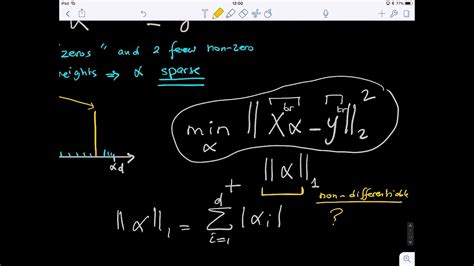 iPad
18:00
"zeros" and 2 few non-zero
weights ⇒ α sparse
min α ‖ X^tr α − y^tr ‖₂²
+ ‖α‖₁
α_d
non-differentiable
?
‖α‖₁ = Σ_{i=1}^{d} |α_i|